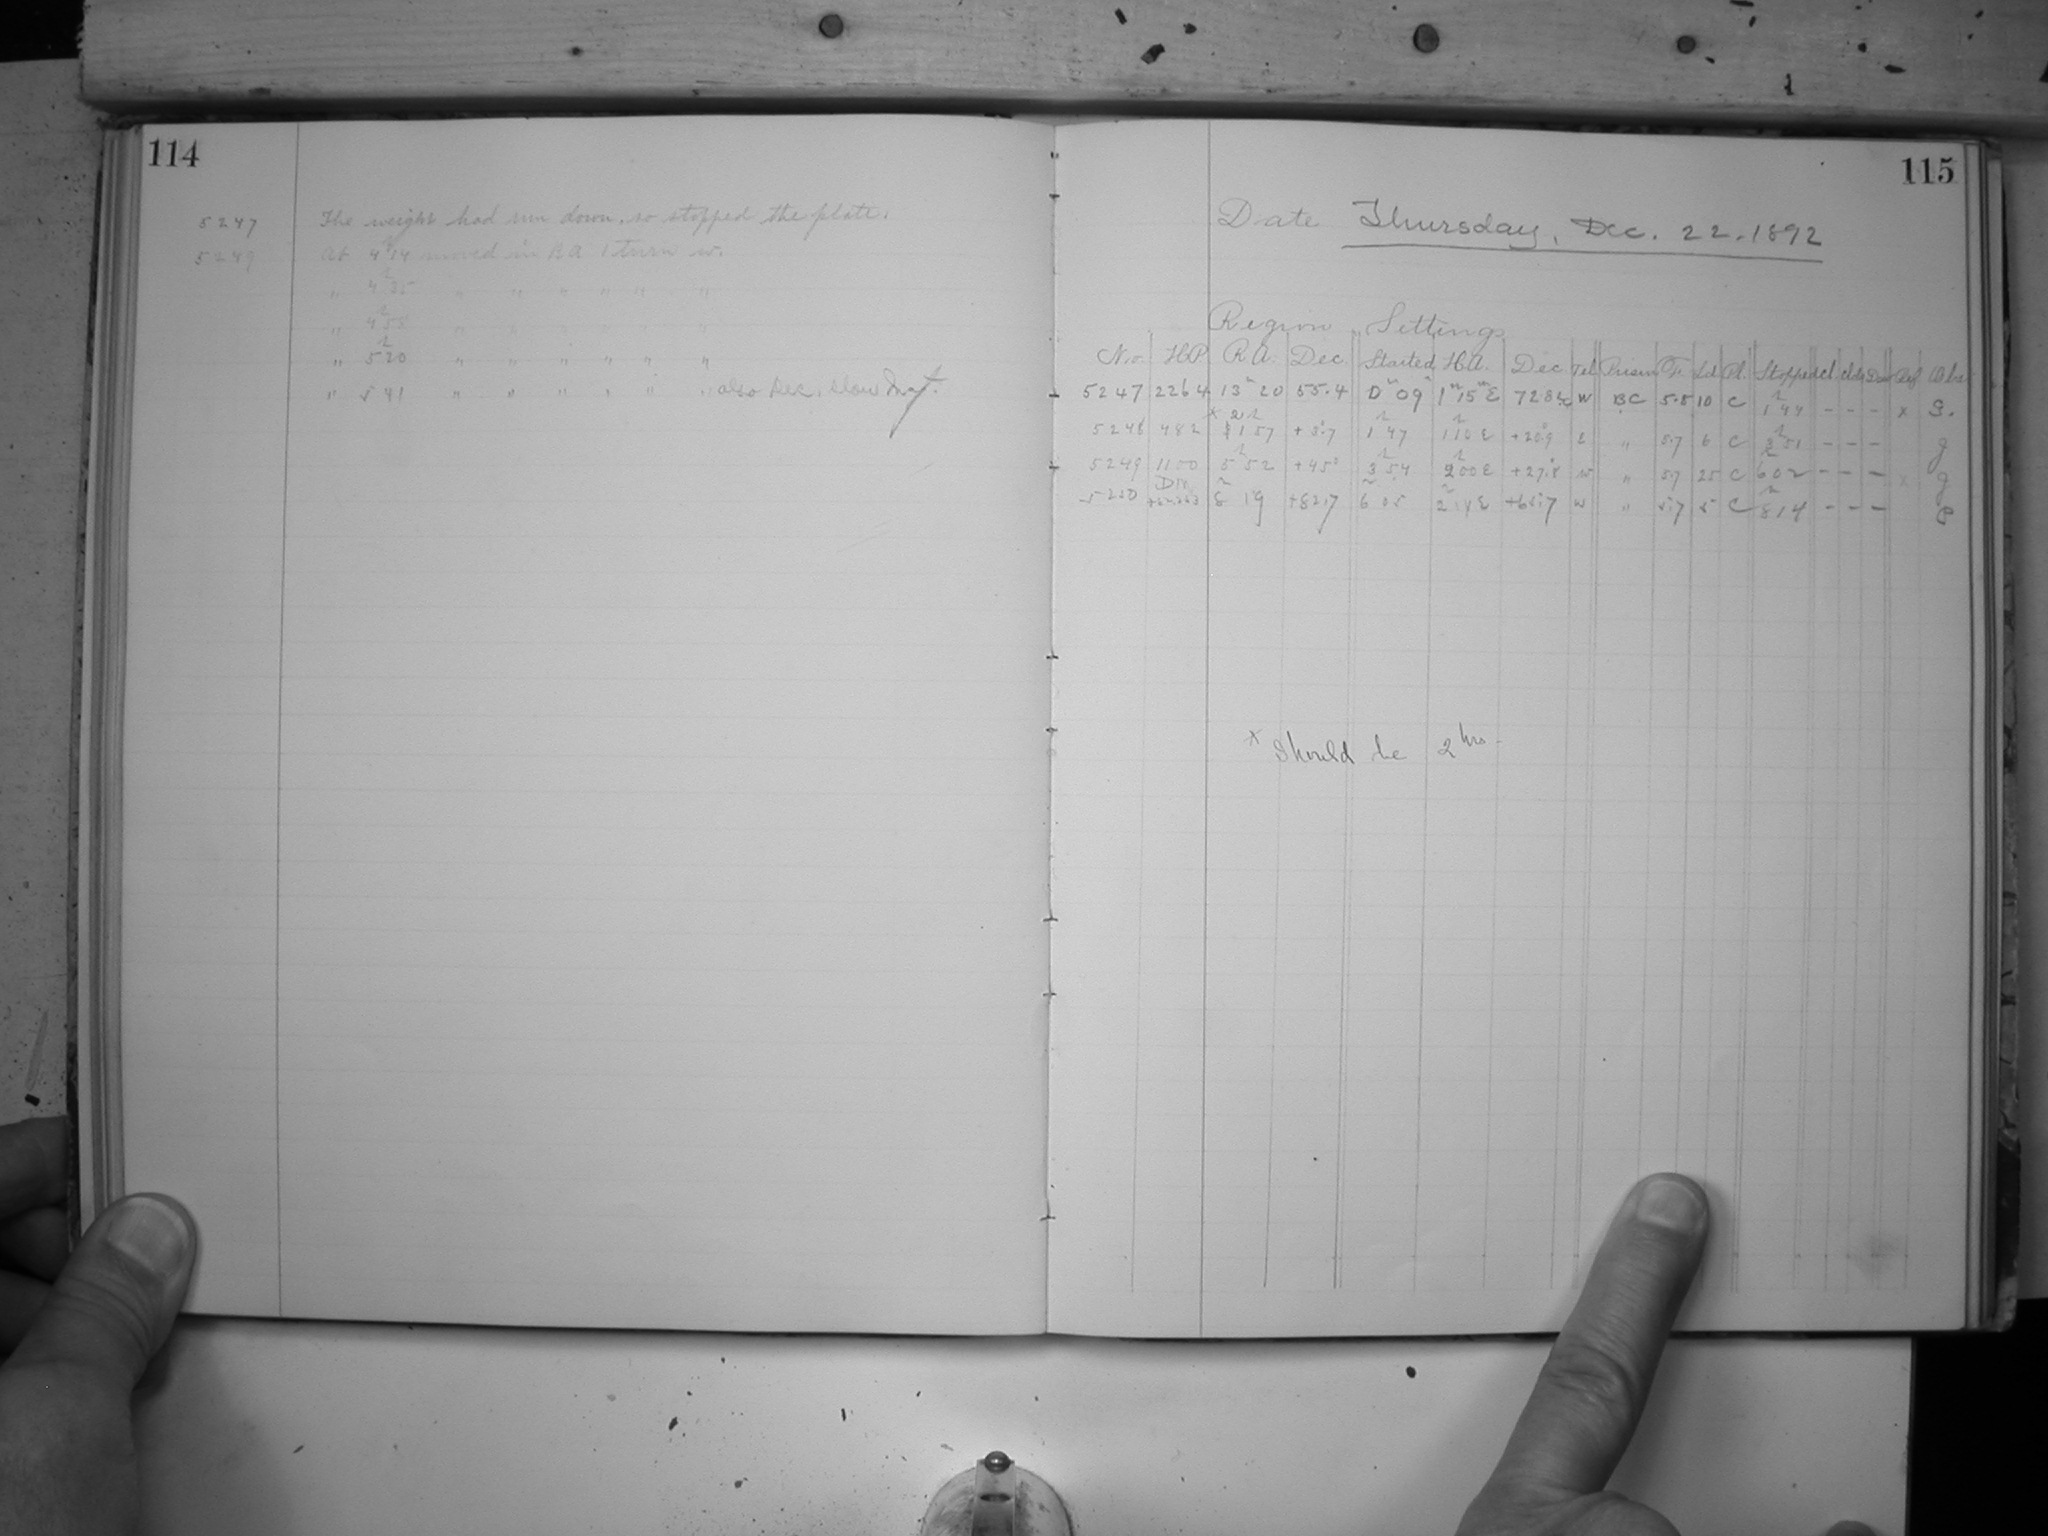 114
5247 The weight had run down, so stopped the plate.
5249 At 4h14 moved in RA 1 turn w.
" 4h35 " " " " " "
" 4h58 " " " " " "
" 5h20 " " " " " "
" 5 41 " " " " " " also Dec. slow
115
Date Thursday, Dec. 22. 1892
Region Settings
No. H.P. R.A. Dec. Started H.A. Dec Tel Prism F. Ld Pl. Stopped Obs
5247 2264 13h 20 55.4 0h 09 1h 15 E W BC 5.5 10 C 1h 44 - - - x g.
5248 482 x 2h 57 1h 47 1h 10 E " 5.7 6 C - - - g
5249 1100 5h 52 +45° 3h 54 2h 00 E +27.8 w " 5.7 25 C 6h 02 - - - x g
8h 19 +82.7 6h 05 w " 5.7 5 C 8h 14 - - -
x Should be 2 hrs.